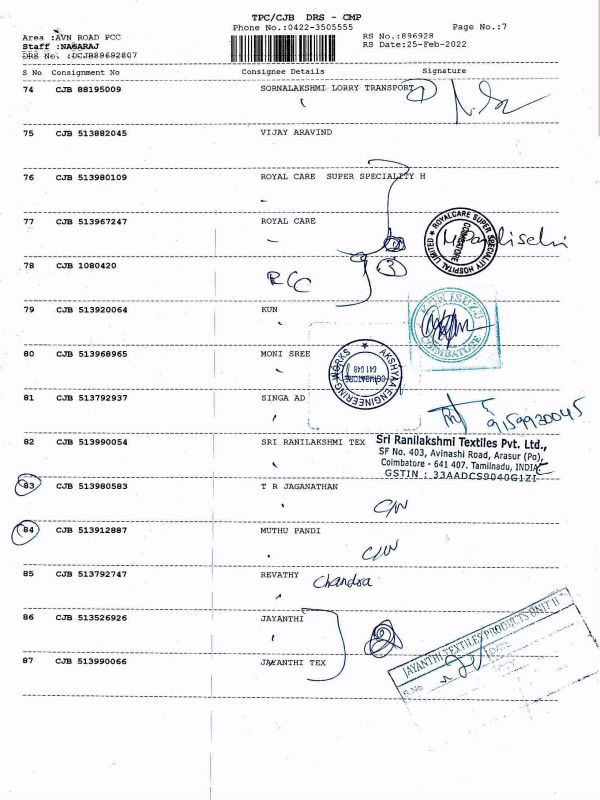 TPC/CJB DRS - CMP
Phone No.:0422-3505555
Page No.:7
Area :AVN ROAD PCC
RS No.:896928
Staff :NAGARAJ
RS Date:25-Feb-2022
DRS No. :DCJB89692807
S No Consignment No Consignee Details Signature
74 CJB 88195009 SORNALAKSHMI LORRY TRANSPORT 1
75 CJB 513882045 VIJAY ARAVIND
76 CJB 513980109 ROYAL CARE SUPER SPECIALITY H
77 CJB 513967247 ROYAL CARE
ROYALCARE SUPER SPECIALITY HOSPITAL LIMITED
COIMBATORE
78 CJB 1080420
RCC
3
79 CJB 513920064 KUN
KUN ISUZU
COIMBATORE
80 CJB 513968965 MONI SREE
AKSHYAA ENGINEERING WORKS
COIMBATORE
641 048
81 CJB 513792937 SINGA AD
9159930045
82 CJB 513990054 SRI RANILAKSHMI TEX
Sri Ranilakshmi Textiles Pvt. Ltd.,
SF No. 403, Avinashi Road, Arasur (Po),
Coimbatore - 641 407. Tamilnadu, INDIA
GSTIN : 33AADCS9040G1ZI
83 CJB 513980583 T R JAGANATHAN
C/W
84 CJB 513912887 MUTHU PANDI
C/W
85 CJB 513792747 REVATHY
Chandra
86 CJB 513526926 JAYANTHI
2
87 CJB 513990066 JAYANTHI TEX
JAYANTHI TEXTILES PRODUCTS UNIT II
S.No
DATE